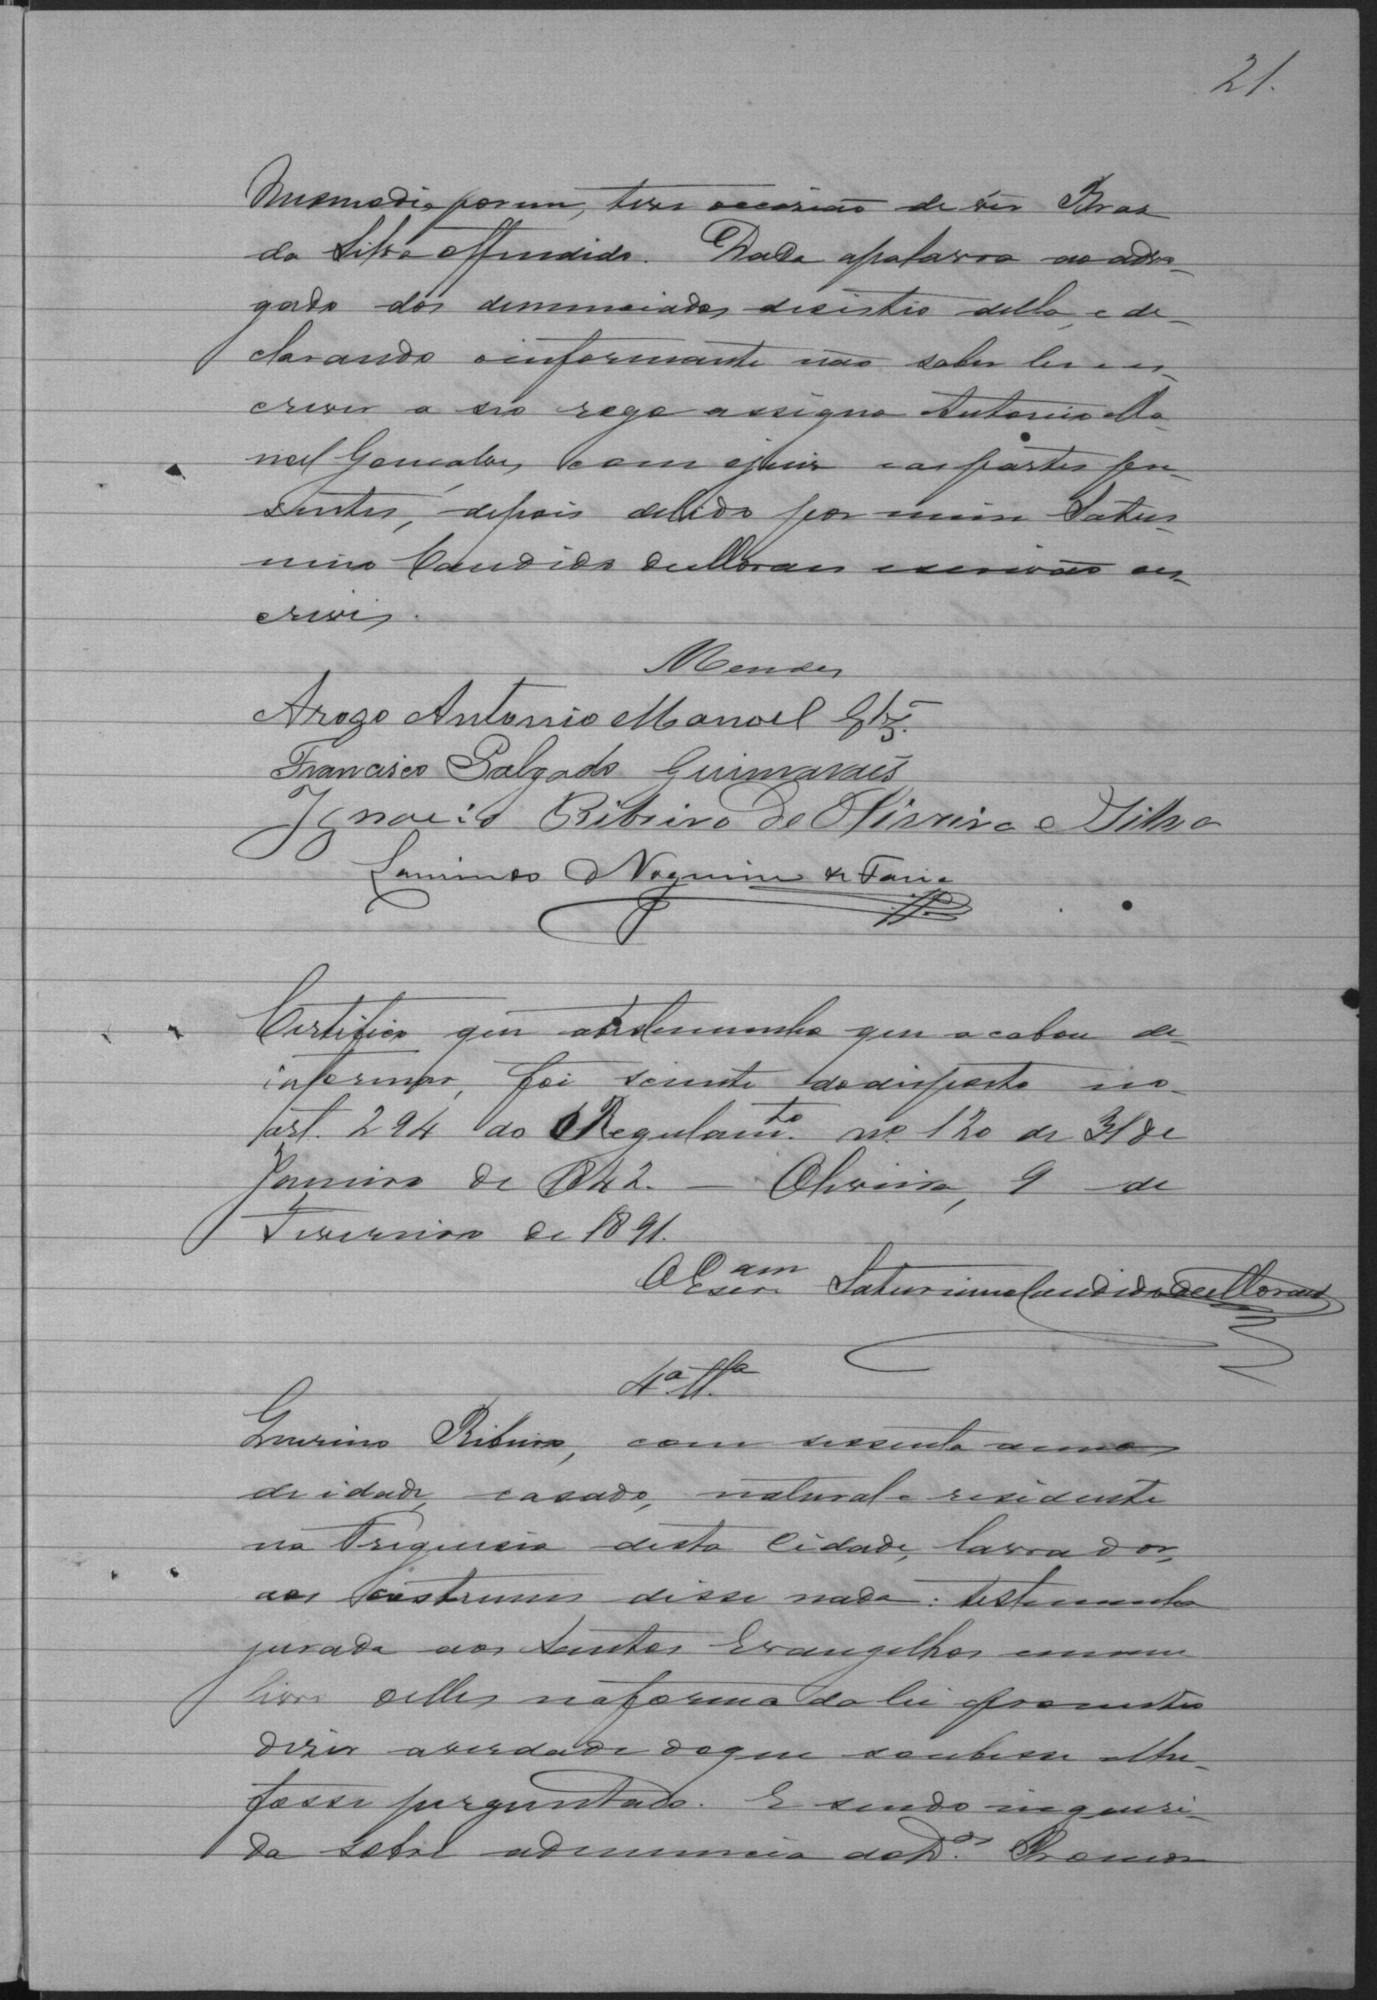 21.
mesmo dia porem, teve occasião de vêr Braz
da Silva offendido. Dada apalavra ao advo-
gado dos denunciados desistio della, e de-
clarando oinformante não saber ler e es-
crever a seo rogo assigna Antonio Ma-
noel Gonçalves, com ojuiz e as partes pre-
sentes, depois delido por mim Satur-
nino Candido de Moraes escrivão es-
crevi.
Mendes
Arogo Antonio Manoel Glz.
Francisco Salgado Guimaraes
Ignacio Ribeiro de Oliveira e Silva
Nogueira de Faria
Certifico que atestemunha que acabou de
informar, foi sciente dodisposto no
art. 294 do Regulamto. nº 120 de 31 de
Janeiro de 1842. — Oliveira, 9 de
Fevereiro de 1891.
O Escram Saturnino Candido de Moraes
4ª Ttª
Ribeiro, com sessenta annos
de idade, casado, natural e residente
na Freguesia desta Cidade, lavrador,
aos costumes disse nada: testemunha
jurada aos Santos Evangelhos emum
livro delles naforma da lei prometteo
dizer averdade doque soubesse elhe
fosse perguntado. E sendo inqueri-
da sobre adenuncia do Dr. Promotor